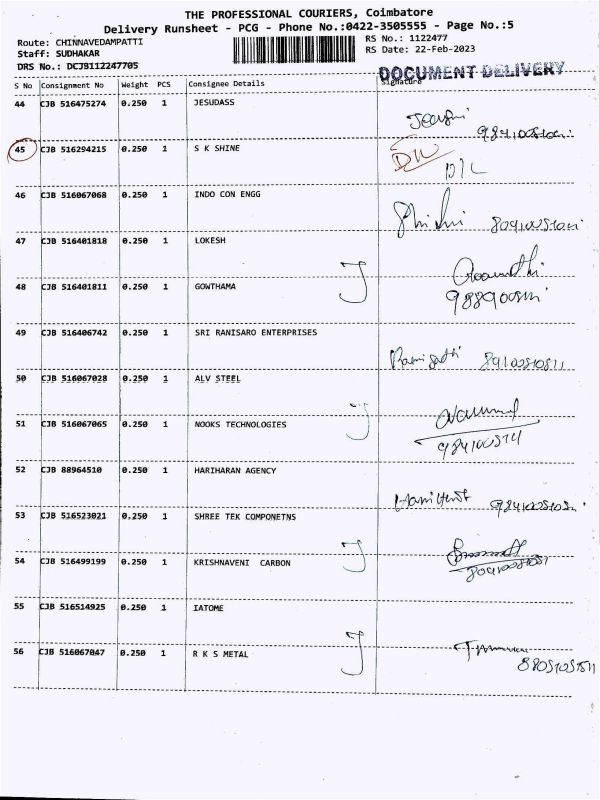 THE PROFESSIONAL COURIERS, Coimbatore
Delivery Runsheet - PCG - Phone No.:0422-3505555 - Page No.:5
Route: CHINNAVEDAMPATTI RS No.: 1122477
Staff: SUDHAKAR RS Date: 22-Feb-2023
DRS No.: DCJB112247705
DOCUMENT DELIVERY
S No Consignment No Weight PCS Consignee Details Signature
44 CJB 516475274 0.250 1 JESUDASS
45 CJB 516294215 0.250 1 S K SHINE
D/L
46 CJB 516067068 0.250 1 INDO CON ENGG
47 CJB 516401818 0.250 1 LOKESH
48 CJB 516401811 0.250 1 GOWTHAMA
49 CJB 516406742 0.250 1 SRI RANISARO ENTERPRISES
50 CJB 516067028 0.250 1 ALV STEEL
51 CJB 516067065 0.250 1 NOOKS TECHNOLOGIES
52 CJB 88964510 0.250 1 HARIHARAN AGENCY
53 CJB 516523021 0.250 1 SHREE TEK COMPONETNS
54 CJB 516499199 0.250 1 KRISHNAVENI CARBON
55 CJB 516514925 0.250 1 IATOME
56 CJB 516067047 0.250 1 R K S METAL